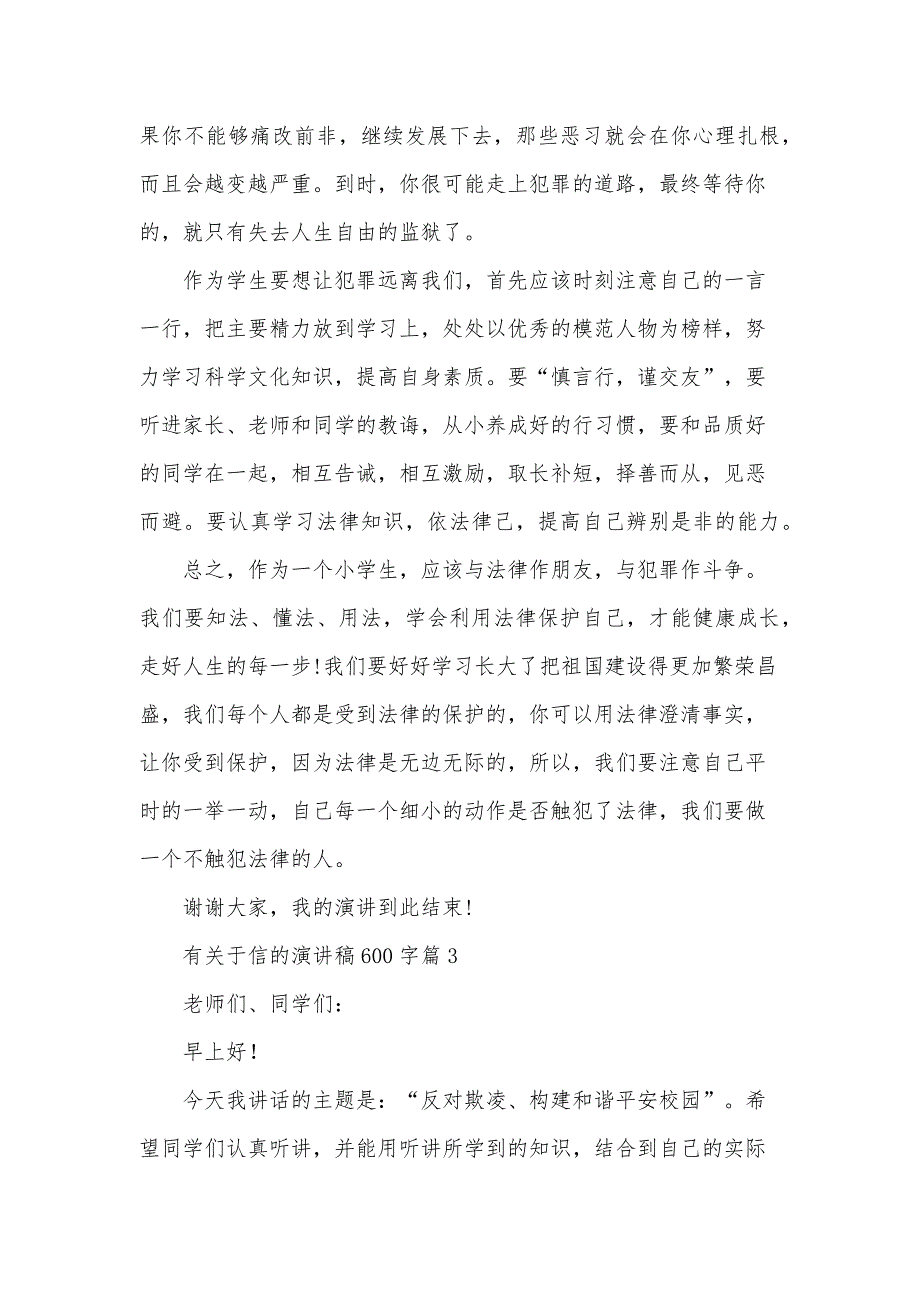 果你不能够痛改前非，继续发展下去，那些恶习就会在你心理扎根，
而且会越变越严重。到时，你很可能走上犯罪的道路，最终等待你
的，就只有失去人生自由的监狱了。
作为学生要想让犯罪远离我们，首先应该时刻注意自己的一言
一行，把主要精力放到学习上，处处以优秀的模范人物为榜样，努
力学习科学文化知识，提高自身素质。要“慎言行，谨交友”，要
听进家长、老师和同学的教诲，从小养成好的行习惯，要和品质好
的同学在一起，相互告诫，相互激励，取长补短，择善而从，见恶
而避。要认真学习法律知识，依法律己，提高自己辨别是非的能力。
总之，作为一个小学生，应该与法律作朋友，与犯罪作斗争。
我们要知法、懂法、用法，学会利用法律保护自己，才能健康成长，
走好人生的每一步!我们要好好学习长大了把祖国建设得更加繁荣昌
盛，我们每个人都是受到法律的保护的，你可以用法律澄清事实，
让你受到保护，因为法律是无边无际的，所以，我们要注意自己平
时的一举一动，自己每一个细小的动作是否触犯了法律，我们要做
一个不触犯法律的人。
谢谢大家，我的演讲到此结束!
有关于信的演讲稿 600 字篇 3
老师们、同学们：
早上好!
今天我讲话的主题是：“反对欺凌、构建和谐平安校园”。希
望同学们认真听讲，并能用听讲所学到的知识，结合到自己的实际